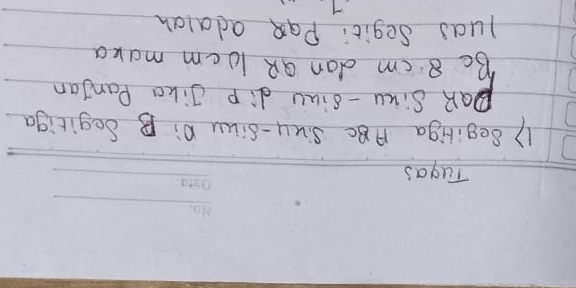 No.
Date.
Tugas
1) Segitiga ABC Siku-Siku Di B Segitiga
PQR Siku-siku di P Jika Panjan
BC 8 cm dan QR 10 cm maka
luas Segiti PQR adalah